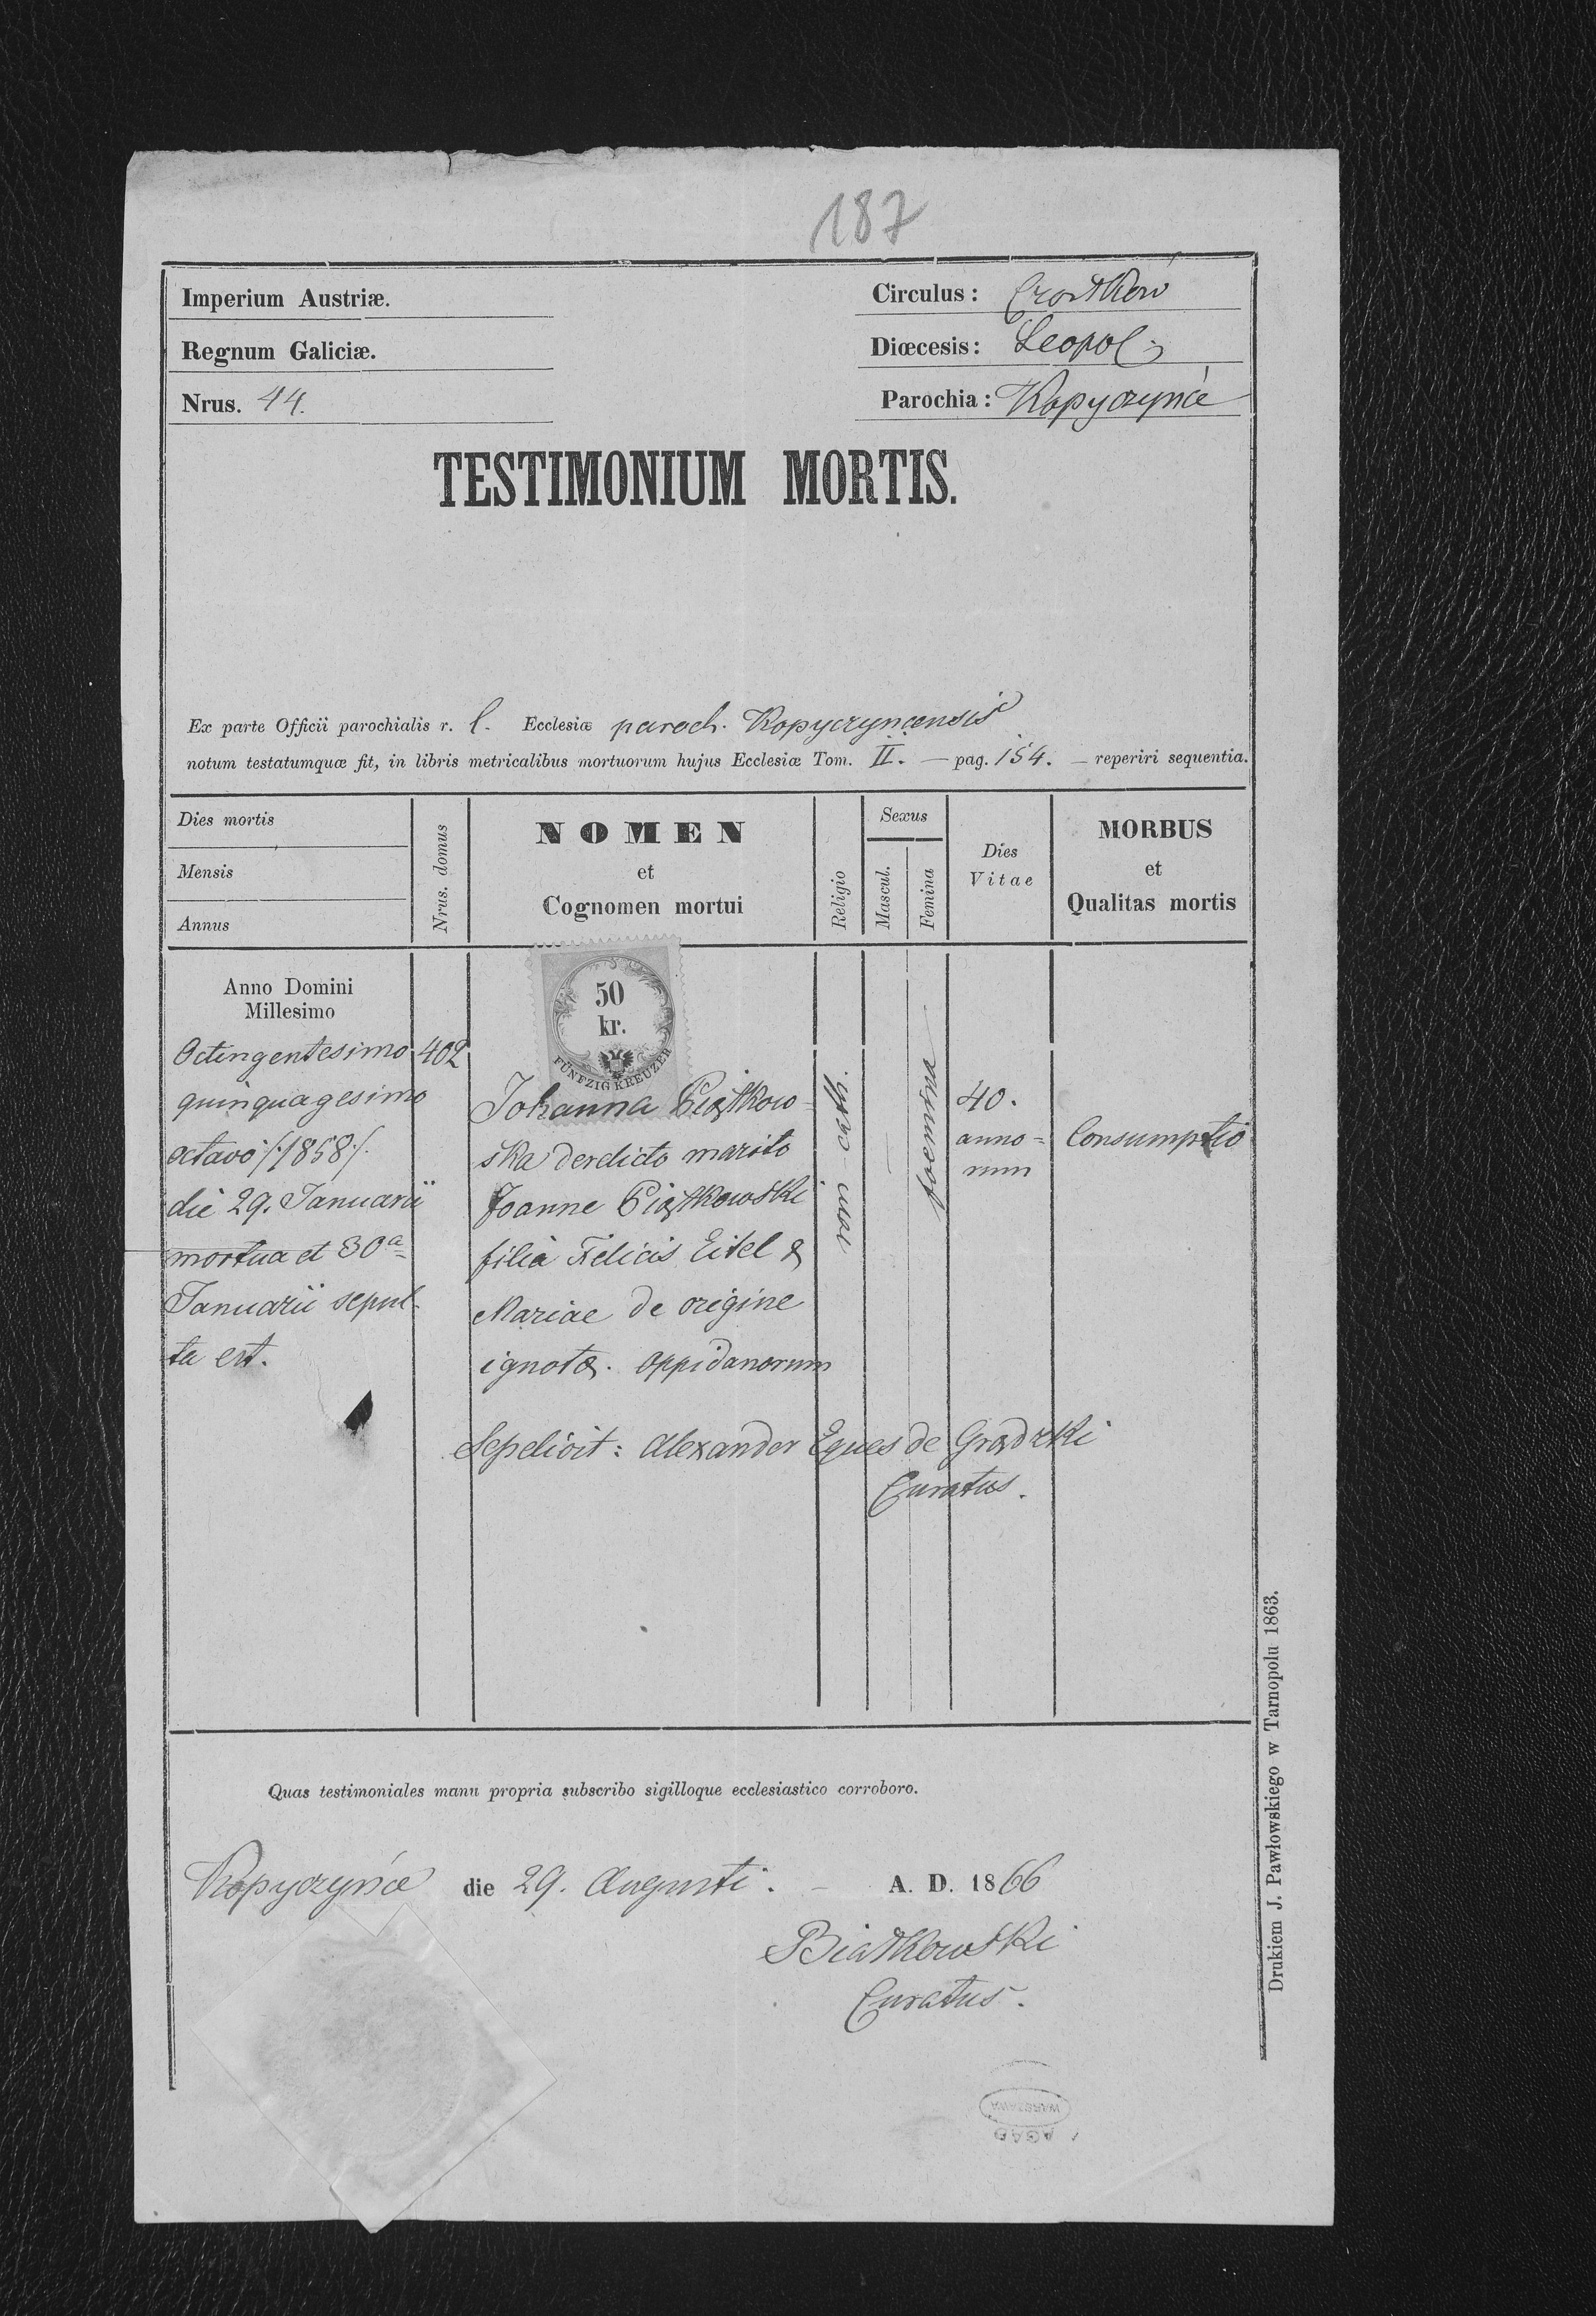 187
Imperium Austriæ.
Circulus: Czortków
Regnum Galiciæ.
Diœcesis: Leopol.
Nrus. 44.
Parochia: Kopyczyńce
TESTIMONIUM MORTIS.
Ex parte Officii parochialis r. l. Ecclesiæ paroch. Kopyczyncensis
notum testatumquæ fit, in libris metricalibus mortuorum hujus Ecclesiæ Tom. II. — pag. 154. — reperiri sequentia.
Dies mortis
Mensis
Annus
Nrus. domus
NOMEN
et
Cognomen mortui
Religio
Sexus
Mascul.
Femina
Dies
Vitae
MORBUS
et
Qualitas mortis
Anno Domini
Millesimo
Octingentesimo
quinquagesimo
octavo /:1858:/.
die 29. Januarii
mortua et 30a
Januarii sepul-
ta est.
402
50
kr.
FÜNFZIG KREUZER
Johanna Piątkow-
ska derelicto marito
Joanne Piątkowski
filia Felicis Eitel &
Mariae de origine
ignotæ. oppidanorum
rom-cath.
foemina
40.
anno=
rum
Consumptio
Sepelivit: Alexander Eques de Grądzki
Curatus.
Quas testimoniales manu propria subscribo sigilloque ecclesiastico corroboro.
Kopyczyńce die 29. Augusti. — A. D. 1866
Biatkowski
Curatus.
AGAD
WARSZAWA
Drukiem J. Pawłowskiego w Tarnopolu 1863.